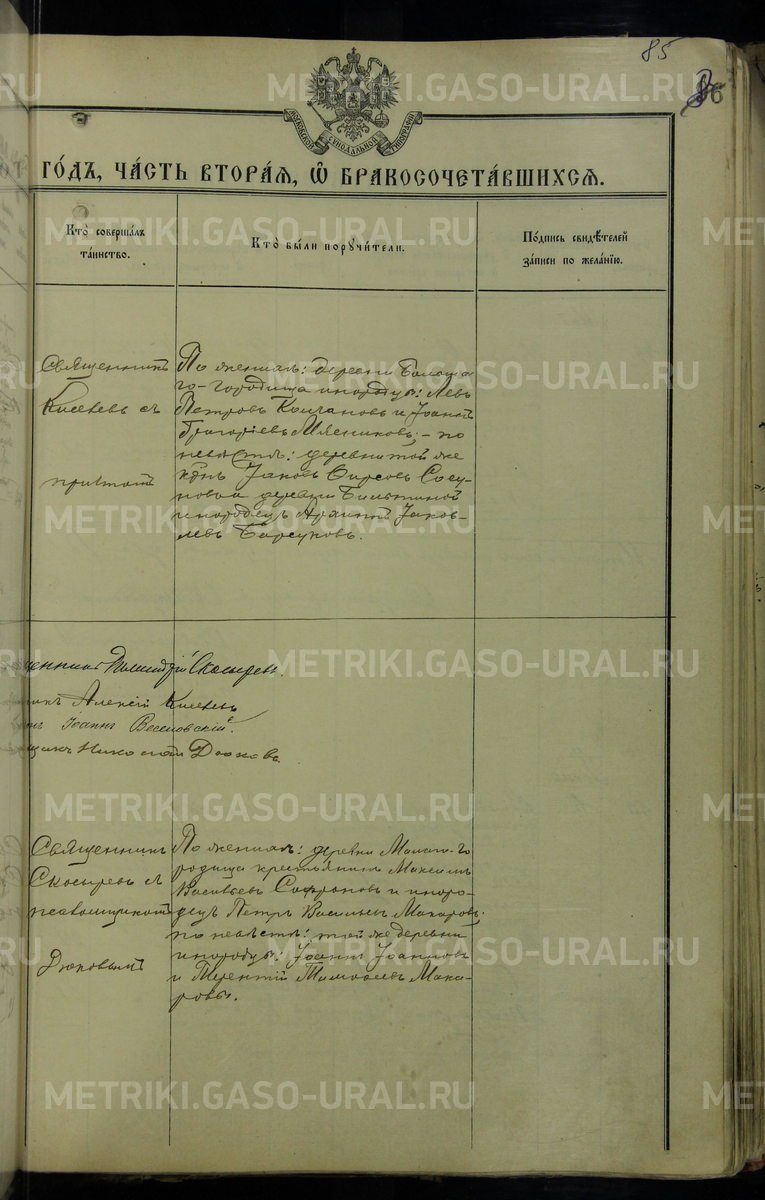 85
86
МОСКОВСКОЙ СѴНОДАЛЬНОЙ ТИПОГРАФІИ
ГО́ДЪ, ЧА́СТЬ ВТОРА́Я, Ѡ҆ БРАКОСОЧЕТА́ВШИХСЯ.
Кто̀ соверша́лъ
та́инство.
Кто̀ бы́ли поручи́тели.
По́дпись свидѣ́телей
за́писи по жела́нїю.
Священникъ
Киселевъ съ
причтомъ
По женихѣ: деревни Больша
го-городища инородцы: Левъ
Петровъ Колчановъ и Іоаннъ
Григоріевъ Мясниковъ; – по
невѣстѣ: деревни той же
кр̃нъ Іаковъ Фирсовъ Сосу-
новъ и деревни
инородецъ Архиппъ Іаков-
левъ Барсуковъ.
щенникъ Димитрій Скосыревъ.
никъ Алексій Киселевъ
нъ Іоаннъ Веселовскій
щикъ Николай
Священникъ
Скосыревъ съ
псаломщикомъ
По женихѣ: деревни Малаго-го
родища крестьянинъ Максимъ
Васильевъ Софроновъ и иноро-
децъ Петръ Васильевъ Макаровъ.
по невѣстѣ: той же деревни
инородцы: Іоаннъ Іоанновъ
и Терентій Тимофеевъ Мака-
ровы.
METRIKI.GASO-URAL.RU